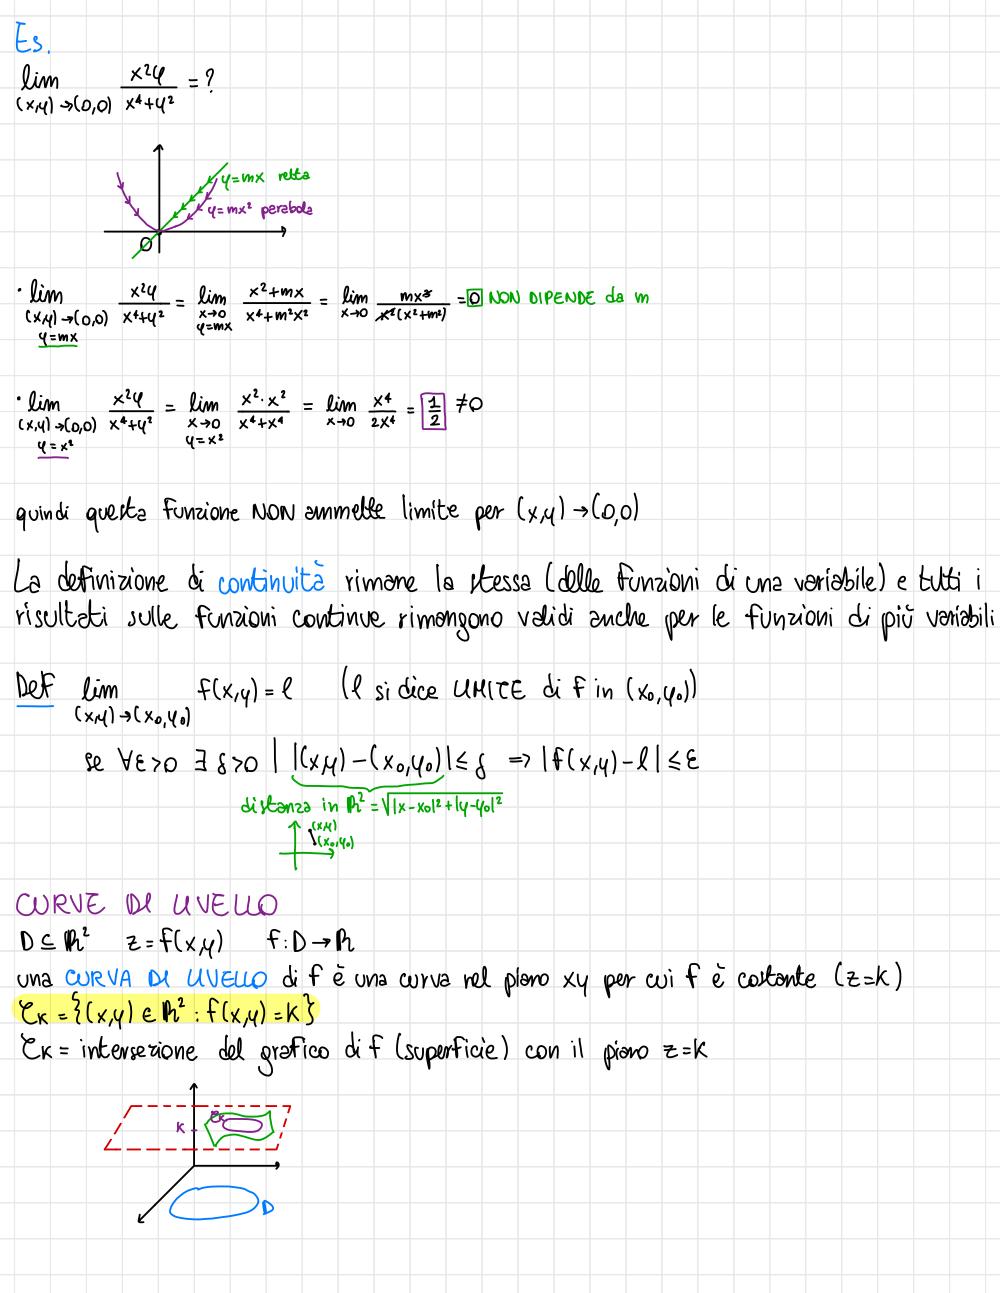 Es.
lim (x,y)→(0,0) x²y / x⁴+y² = ?
y=mx retta
y=mx² parabola
O
• lim (x,y)→(0,0) y=mx x²y / x⁴+y² = lim x→0 y=mx x²+mx / x⁴+m²x² = lim x→0 mx³ / x²(x²+m²) = 0 NON DIPENDE da m
• lim (x,y)→(0,0) y=x² x²y / x⁴+y² = lim x→0 y=x² x²·x² / x⁴+x⁴ = lim x→0 x⁴ / 2x⁴ = 1/2 ≠0
quindi questa funzione NON ammette limite per (x,y)→(0,0)
La definizione di continuità rimane la stessa (delle funzioni di una variabile) e tutti i
risultati sulle funzioni continue rimangono validi anche per le funzioni di più variabili
Def lim (x,y)→(x₀,y₀) f(x,y)=l (l si dice LIMITE di f in (x₀,y₀))
se ∀ε>0 ∃δ>0 | |(x,y)-(x₀,y₀)|≤δ ⇒ |f(x,y)-l|≤ε
distanza in ℝ² = √|x-x₀|²+|y-y₀|²
(x,y)
(x₀,y₀)
CURVE DI LIVELLO
D⊆ℝ² z=f(x,y) f:D→ℝ
una CURVA DI LIVELLO di f è una curva nel piano xy per cui f è costante (z=k)
Ck={(x,y)∈ℝ²:f(x,y)=k}
Ck= intersezione del grafico di f (superficie) con il piano z=k
Ck
k
D